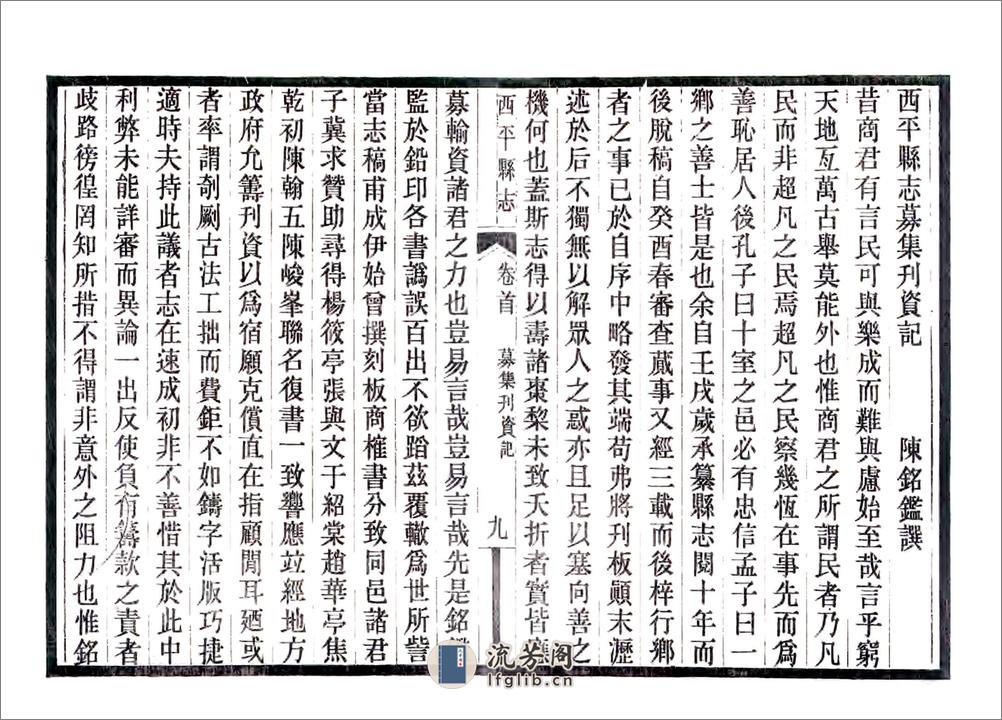 西平縣志募集刊資記　陳銘鑑譔
昔商君有言民可與樂成而難與慮始至哉言乎窮
天地亙萬古舉莫能外也惟商君之所謂民者乃凡
民而非超凡之民焉超凡之民察幾恆在事先而為
善恥居人後孔子曰十室之邑必有忠信孟子曰一
鄉之善士皆是也余自壬戌歲承纂縣志閱十年而
後脫稿自癸酉春審查蕆事又經三載而後梓行鄉
者之事已於自序中略發其端苟弗將刊板顚末瀝
述於后不獨無以解眾人之惑亦且足以塞向善之
機何也蓋斯志得以壽諸棗黎未致夭折者實皆
西平縣志　卷首　募集刊資記　九
募輸資諸君之力也豈易言哉豈易言哉先是銘
監於鉛印各書譌誤百出不欲蹈茲覆轍爲世所訾
當志稿甫成伊始曾撰刻板商榷書分致同邑諸君
子冀求贊助尋得楊筱亭張與文于紹棠趙華亭焦
乾初陳翰五陳峻峯聯名復書一致響應竝經地方
政府允籌刊資以爲宿願克償直在指顧閒耳廼或
者率謂剞劂古法工拙而費鉅不如鑄字活版巧捷
適時夫持此議者志在速成初非不善惜其於此中
利弊未能詳審而異論一出反使負有籌款之責者
歧路徬徨罔知所措不得謂非意外之阻力也惟銘
流芳阁
lfglib.cn